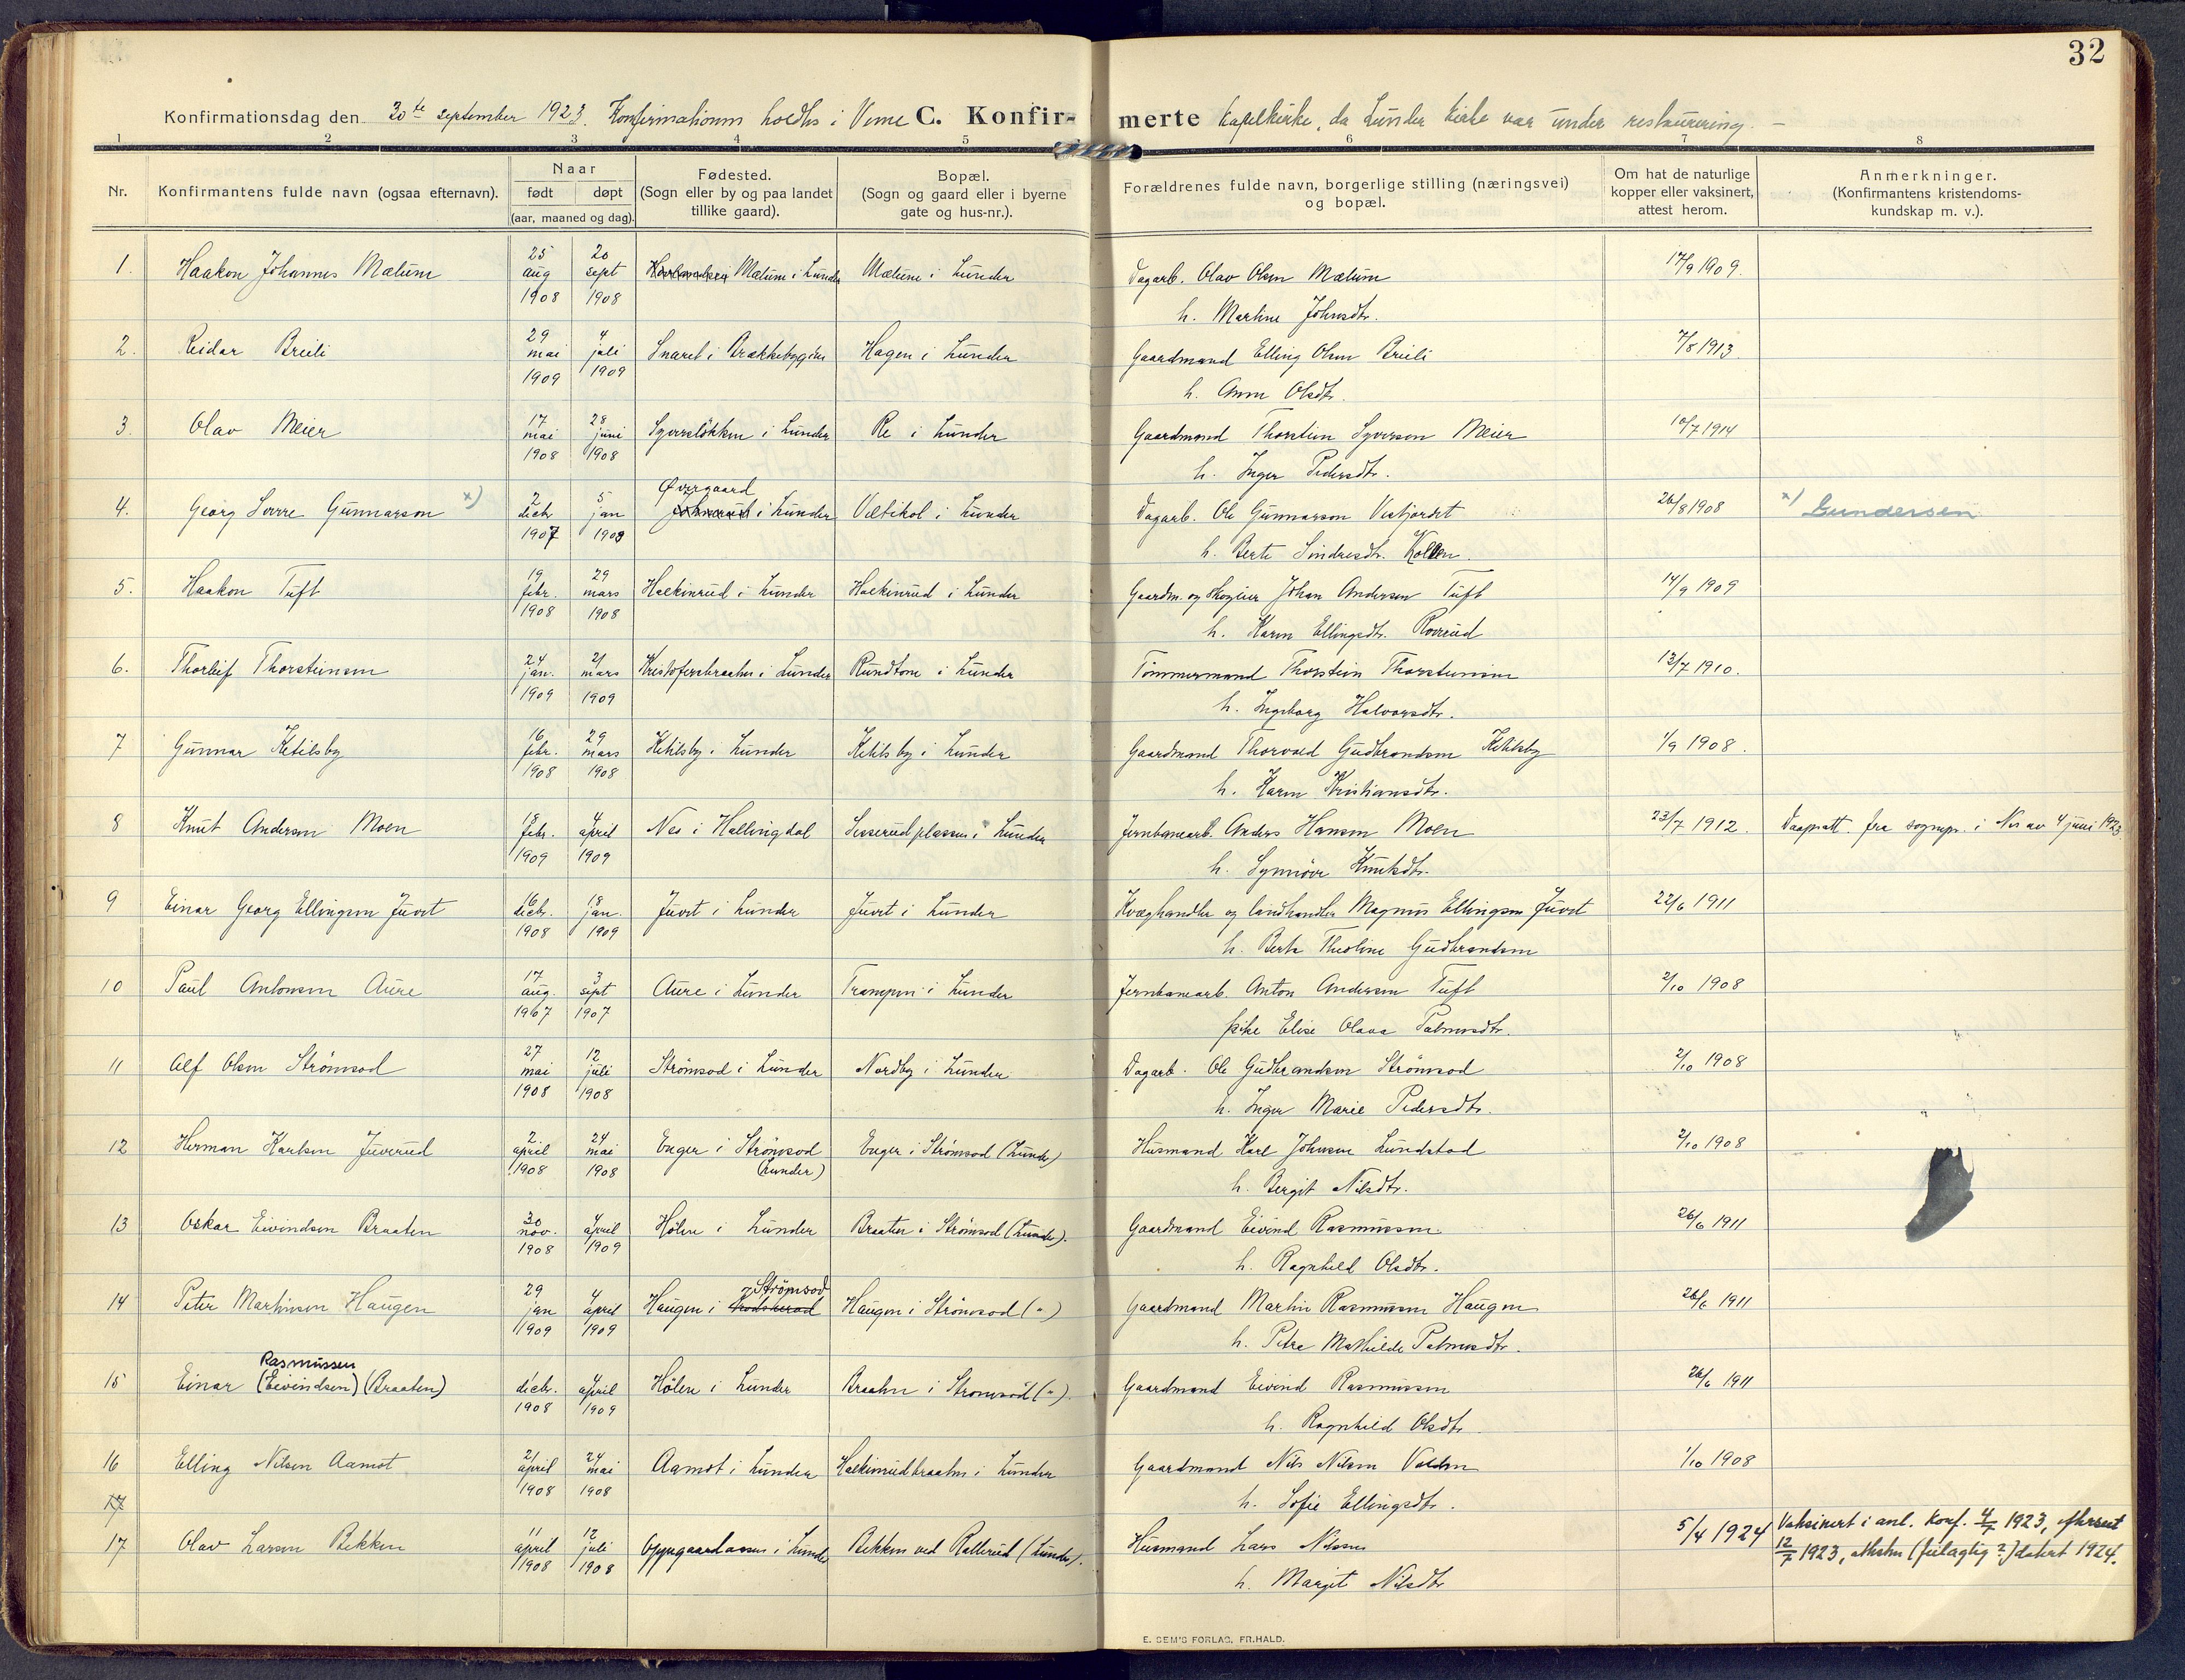 32
Konfirmationsdag den 30te september 1923. Konfirmationen holdtes i Veme C. Konfir- merte kapelkirke, da Lunder kirke var under restaurering. –
1 2 3 4 5 6 7 8
Nr. Konfirmantens fulde navn (ogsaa efternavn). Naar født døpt (aar, maaned og dag). Fødested. (Sogn eller by og paa landet tillike gaard). Bopæl. (Sogn og gaard eller i byerne gate og hus-nr.). Forældrenes fulde navn, borgerlige stilling (næringsvei) og bopæl. Om hat de naturlige kopper eller vaksinert, attest herom. Anmerkninger. (Konfirmantens kristendoms- kundskap m. v.).
1. Haakon Johannes Mælum 25 aug 1908 20 sept 1908 Mælum i Lunder Mælum i Lunder Dagarb. Olav Olsen Mælum 17/9 1909.
h. Marthine Johnsdtr.
2. Reidar Breili 29 mai 1909 4 juli 1909 Snaret i Brækkebygden Hagen i Lunder Gaardmand Elling Olsen Breili 7/8 1913.
h. Anne Olsdtr.
3. Olav Meier 17 mai 1908 28 juni 1908 Syversløkken i Lunder Re i Lunder Gaardmand Thorstein Syversen Meier 10/7 1914
h. Inger Pedersdtr.
4. Georg Sverre Gunnarson x) 2 decbr 1907 5 jan 1908 Øvergaard i Lunder Veltikol i Lunder Dagarb. Ole Gunnarson Vestjordet 26/8 1908 x) Gundersen
h. Berte Sindresdtr. Kollen.
5. Haakon Tuft 19 febr. 1908 29 mars 1908 Halkinrud i Lunder Halkinrud i Lunder Gaardm. og skogeier Johan Andersen Tuft 14/9 1909
h. Karen Ellingsdtr. Roverud
6. Thorleif Thorsteinsen 24 jan. 1909 21 mars 1909 Kristofersbraaten i Lunder Rundtom i Lunder Tømmermand Thorstein Thorsteinsen 13/7 1910.
h. Ingeborg Halvorsdtr.
7 Gunnar Ketilsby 16 febr. 1908 29 mars 1908 Ketilsby i Lunder Ketilsby i Lunder Gaardmand Thorvald Gudbrandsen Ketilsby 1/9 1908.
h. Karen Kristiansdtr.
8 Knut Andersen Moen 18 febr. 1909 4 april 1909 Nes i Hallingdal Sisserudplassen i Lunder Jernbanearb. Anders Hansen Moen 23/7 1912. Daapsatt. fra sognepr. i Nes av 4 juni 1923
h. Synnøve Knutsdtr.
9 Einar Georg Ellingsen Juvet 16 decbr. 1908 18 jan. 1909 Juvet i Lunder Juvet i Lunder Kvæghandler og landhandler Magnus Ellingsen Juvet 22/6 1911
h. Berte Theoline Gudbrandsen
10 Paul Antonsen Aure 17 aug. 1907 3 sept 1907 Aure i Lunder Trampen i Lunder Jernbanearb. Anton Andersen Tuft 2/10 1908
pike Elise Olava Palmesdtr.
11 Alf Olsen Strømsod 27 mai 1908 12 juli 1908 Strømsod i Lunder Nordby i Lunder Dagarb. Ole Gudbrandsen Strømsod 2/10 1908
h. Inger Marie Pedersdtr.
12 Herman Karlsen Juverud 2 april 1908 24 mai 1908 Enger i Strømsod (Lunder) Enger i Strømsod (Lunder) Husmand Karl Johnsen Lundstad 2/10 1908
h. Bergit Nilsdtr.
13 Oskar Eivindsen Braaten 30 nov. 1908 4 april 1909 Hølen i Lunder Braaten i Strømsod (Lunder). Gaardmand Eivind Rasmussen 26/6 1911
h. Ragnhild Olsdtr.
14 Peter Martinsen Haugen 29 jan 1909 4 april 1909 Haugen i Strømsod Krødsherad Haugen i Strømsod (") Gaardmand Martin Rasmussen Haugen 26/6 1911
h. Petra Mathilde Palmesdtr.
Rasmussen
15 Einar (Eivindsen) (Braaten) 1 decbr. 1908 4 april 1909 Hølen i Lunder Braaten i Strømsod ("). Gaardmand Eivind Rasmussen 26/6 1911
h. Ragnhild Olsdtr.
16 Elling Nilsen Aamot 21 april 1908 24 mai 1908 Aamot i Lunder Halkinrudbraaten i Lunder Gaardmand Nils Nilsen Volden 1/10 1908
17 h. Sofie Ellingsdtr.
17 Olav Larsen Bekken 11 april 1908 12 juli 1908 i Lunder Bekken ved Rallerud (Lunder). Husmand Lars Nilsen 5/4 1924 Vaksinert i anl. konf. 4/7 1923, efterseet 12/7 1923, attesten (feilagtig?) datert 1924.
h. Margit Nilsdtr
E. SEM'S FORLAG, FR.HALD.